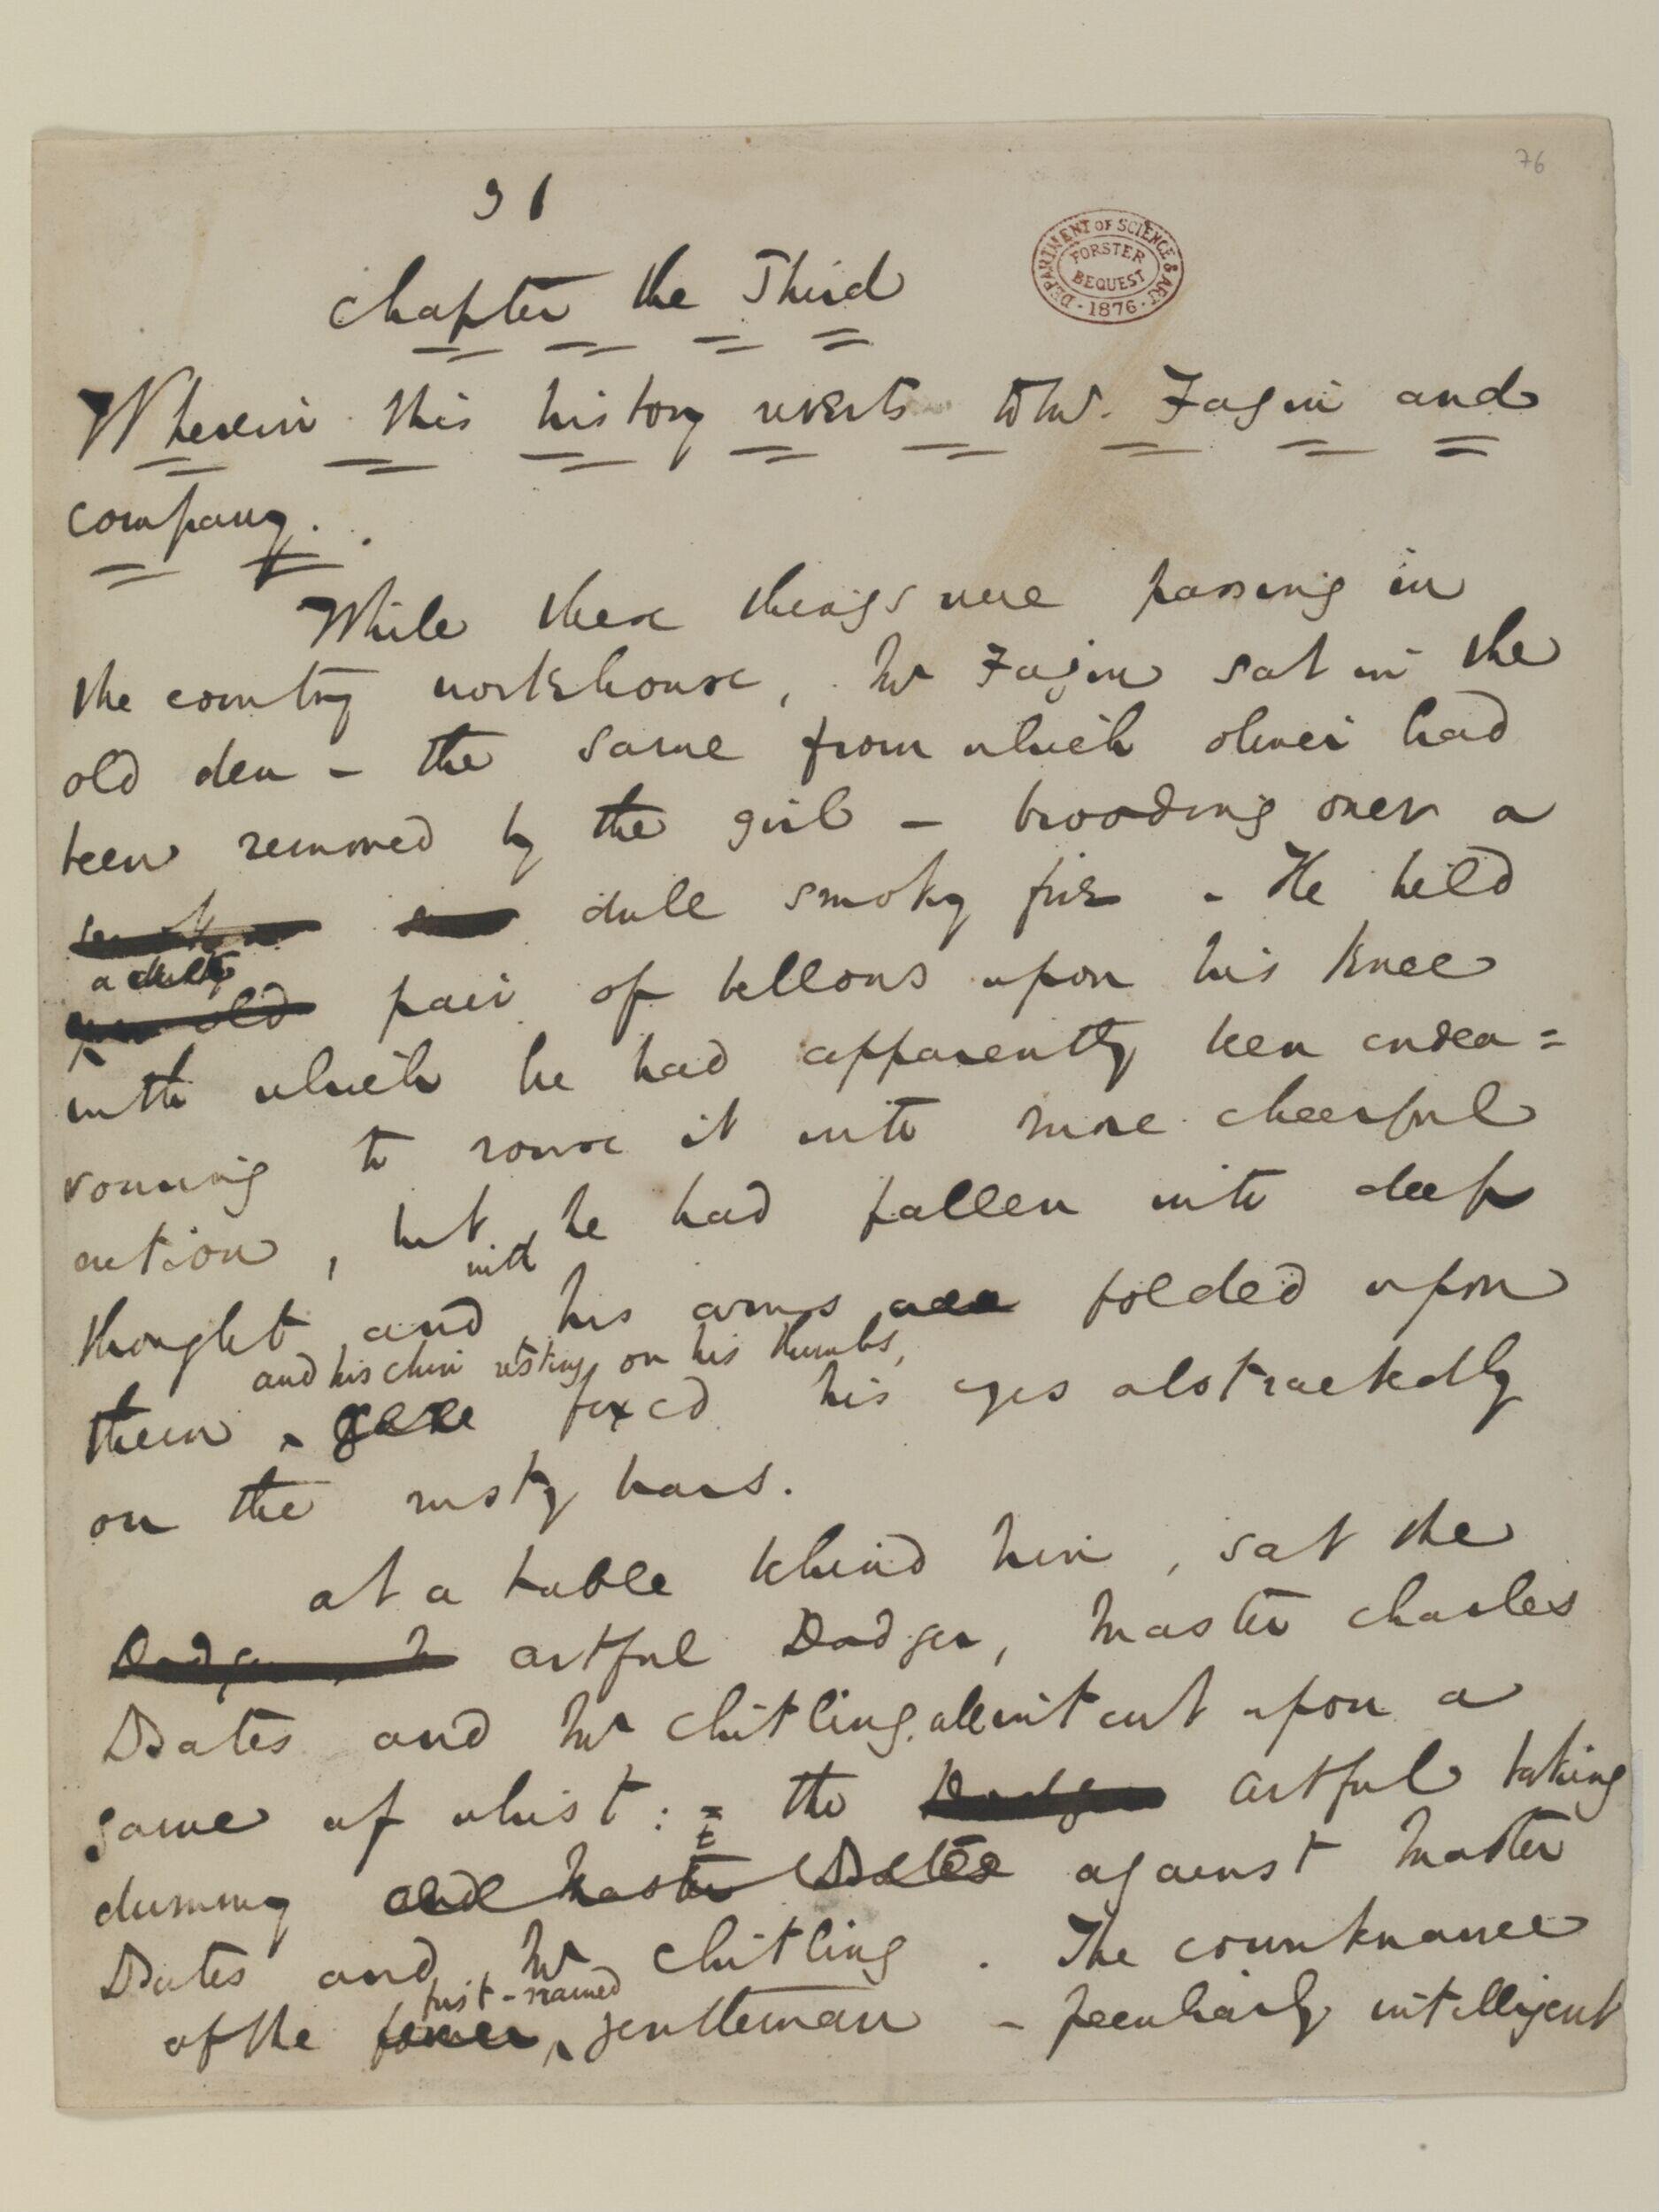 76
31
DEPARTMENT OF SCIENCE & ART · 1876 ·
FORSTER
BEQUEST
Chapter the Third
Wherein this history reverts to Mr. Fagin and
company.
While these things were passing in
the country workhouse, Mr Fagin sat in the
old den – the same from which oliver had
been removed by the girl – brooding over a
dull smoky fire. He held
a
old pair of bellows upon his knee
with which he had apparently been endea=
vouring to rouse it into more cheerful
action, but he had fallen into deep
with
thought and his arms folded upon
and his chin resting on his thumbs,
them fixed his eyes abstractedly
on the rusty bars.
at a table behind him, sat the
Dodger artful Dodger, Master Charles
Bates and Mr Chitling, all intent upon a
game of whist: = the Dodger artful taking
dummy and Master Bates against Master
Bates and Mr Chitling. The countenance
first-named
of the former gentleman – peculiarly intelligent